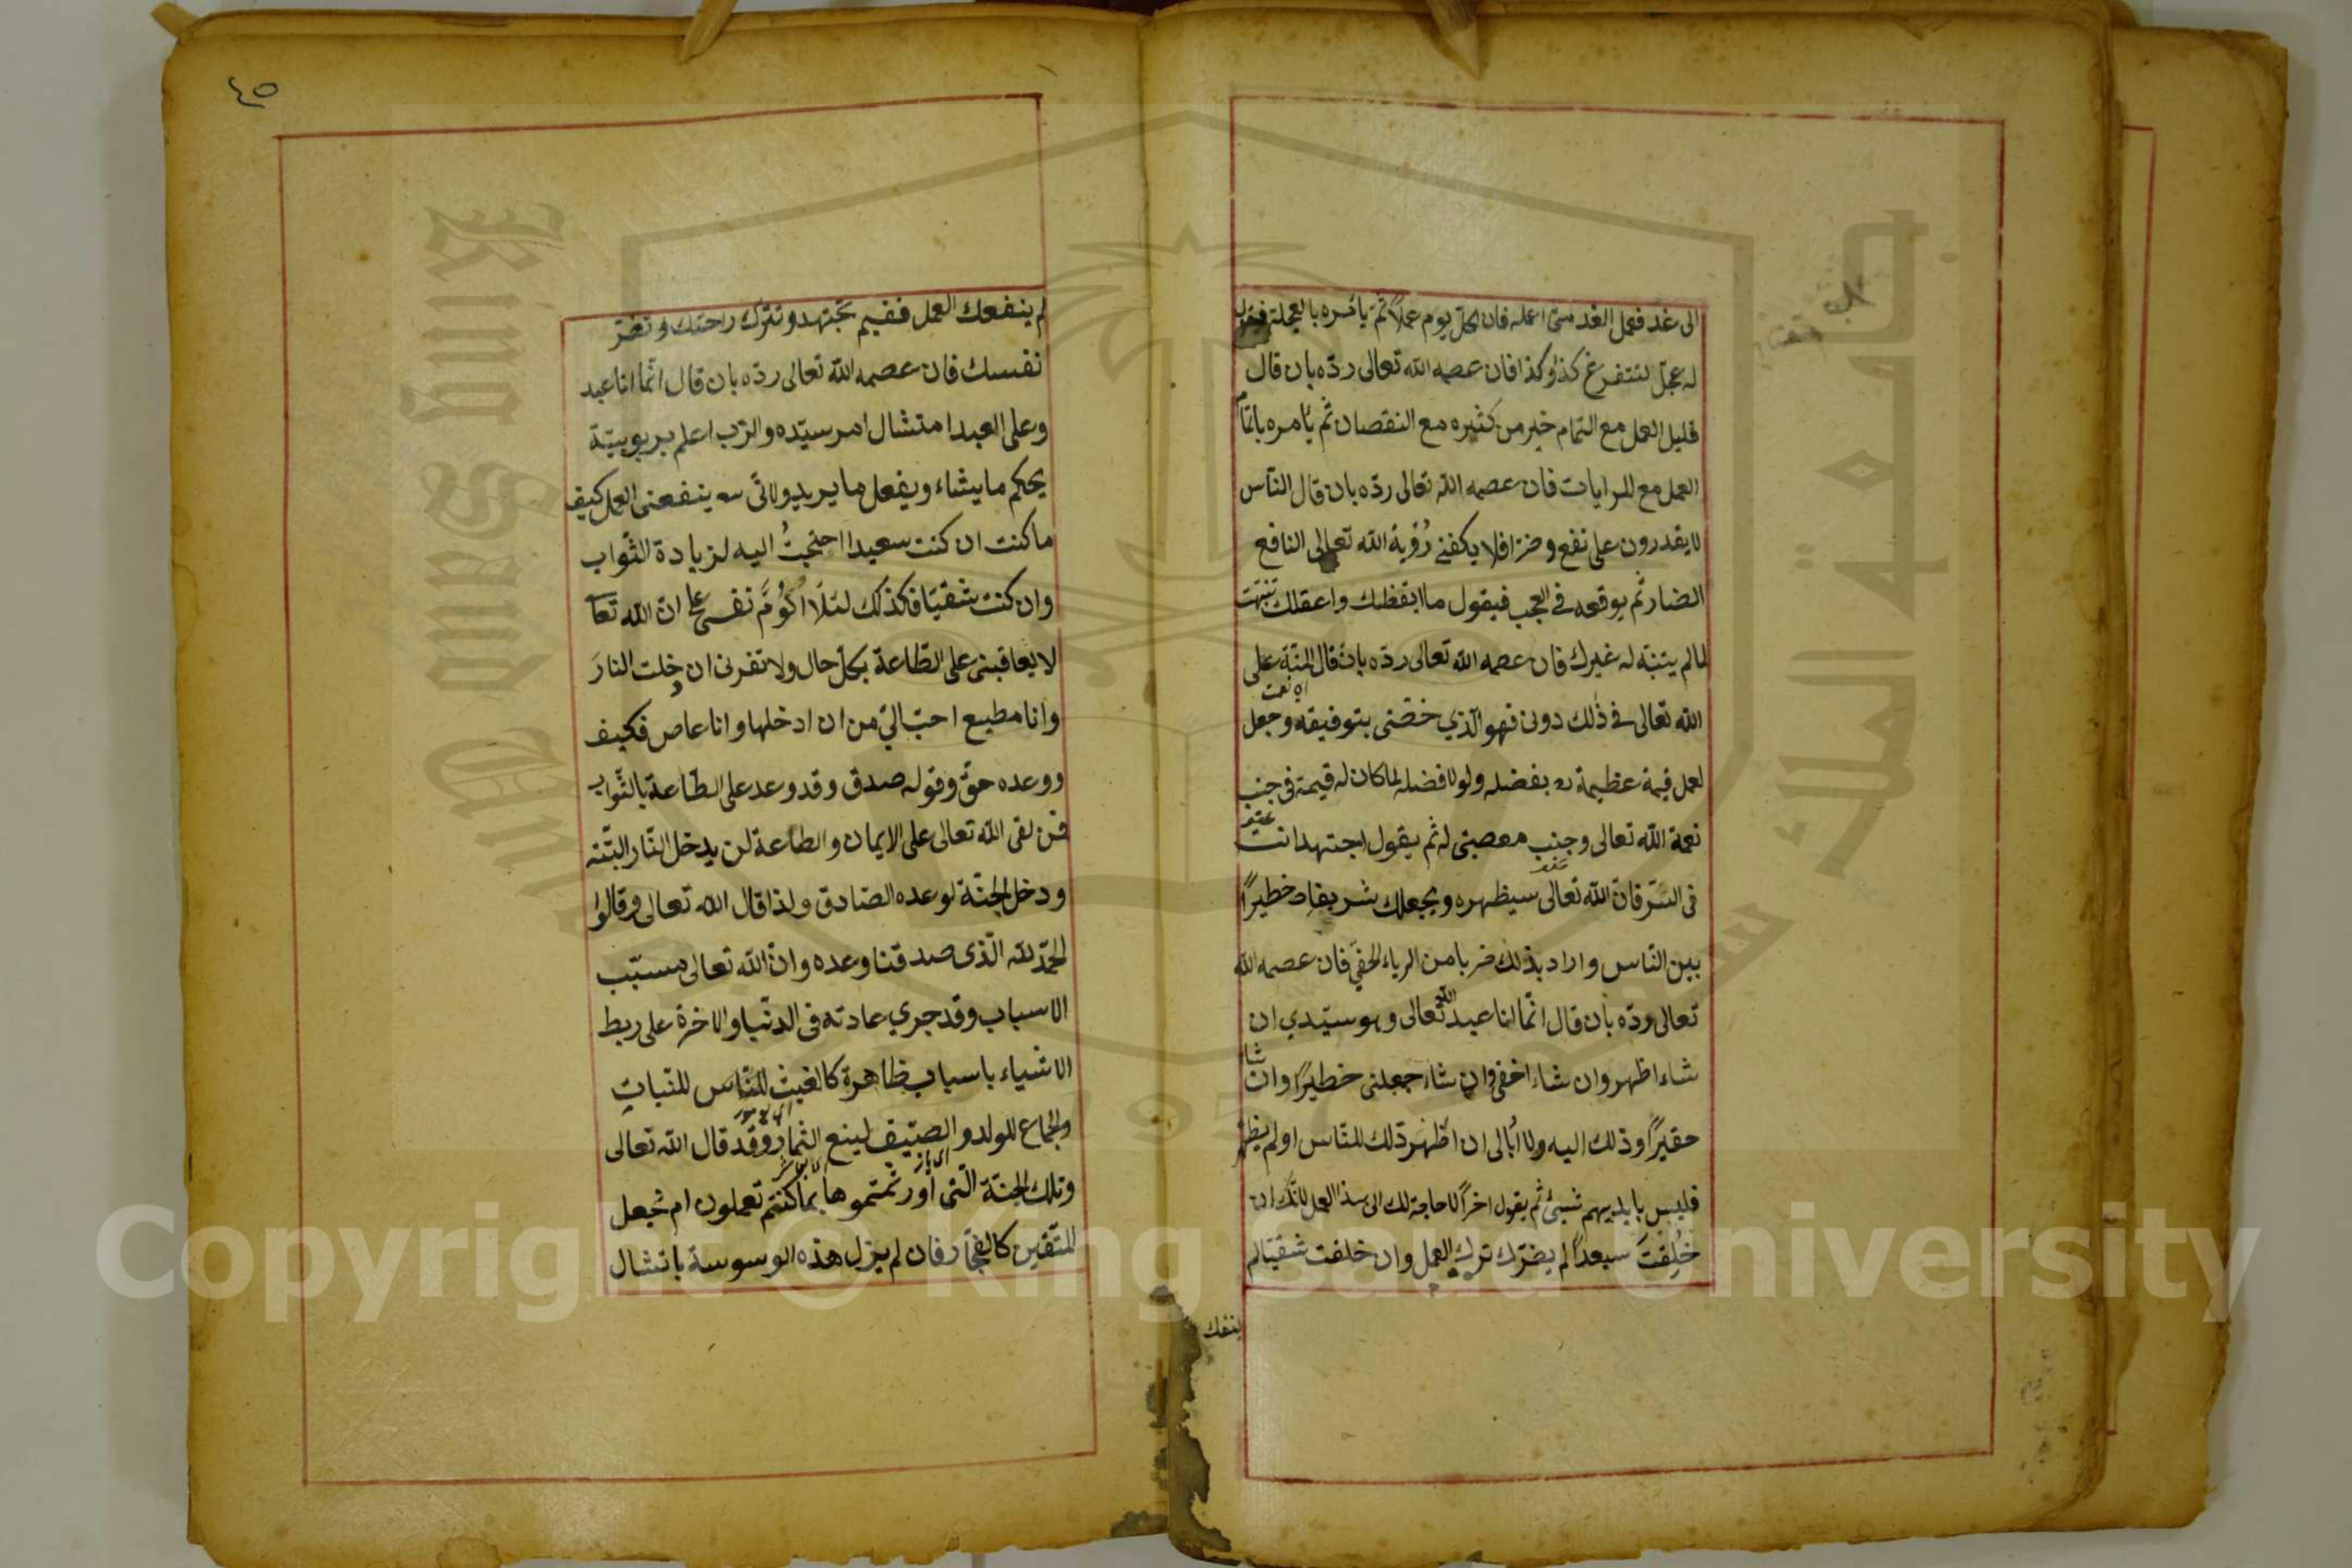 الى غد فعمل الغد متى اعمله فان لكلّ يوم عملاً ثمّ يأمره بالعجلة فيقول
له عجّل لتتفرغ كذا وكذا فان عصمه الله تعالى ردّه بان قال
قليل العمل مع التمام خير من كثيره مع النقصان ثم يأمره باتمام
العمل مع المرايات فان عصمه الله تعالى ردّه بان قال النّاس
لا يقدرون على نفع وضرّ افلا يكفنے رُؤية الله تعالى النافع
الضار ثم يوقعه فے العجب فيقول ما ايقظك واعقلك تنبّهت
لما لم يتنبّه له غيرك فان عصمه الله تعالى ردّه بانّ قال المنّة على
اى نعمت
الله تعالى فے ذٰلك دونى فهو الّذي خصّنى بتوفيقه وجعل
لعمل قيمة عظيمة بفضله ولولا فضله لما كان له قيمة فى جنب
نعمة الله تعالى وجنب معصيتى له ثم يقول اجتهد انت
فى السّرّ فانّ الله تعالى سيظهره ويجعلك شريفا خطيرًا
بين النّاس واراد بذلك ضربا من الرياء الخفّي فان عصمه الله
تعالى ردّه بأن قال انّما انا عبد الله تعالى وهو سيّدي ان
شاء اظهر وان شاء اخفى وان شاء جعلنى خطيرًا وان شاء
حقيرًا وذلك اليه ولا ابُالى ان اظهر ذلك للنّاس او لم يظهر
فليس بايديهم شيئ ثم يقول اخرًا لا حاجة لك الى هذا العمل لانّك ان
خُلِقتَ سيعداً لم يضرّك ترك العمل وان خلقت شقيّا لم
ينفعك
٤٥
لم ينفعك العمل ففيم تجتهد وتترك راحتك وتضرّ
نفسك فان عصمه الله تعالى ردّه بان قال انّما انا عبد
وعلى العبد امتثال امر سيّده والرّب اعلم بربوبيّة
يحكم ما يشاء ويفعل ما يريد ولانّى ينفعنى العمل كيف
ما كنت ان كنت سعيدا احتجتُ اليه لزيادة الثّواب
وان كنت شقيّا فكذلك لئلّا اَلُومَ نفسى على انّ الله تعآ
لا يعاقبنى على الطّاعة بكلّ حال ولا تضرنى ان دخلت النارَ
وانا مطيع احبّ اليّ من ان ادخلها وانا عاص فكيف
ووعده حقّ وقوله صدق وقد وعد على الطّاعة بالثّواب
فمن لقى الله تعالى على الايمان والطاعة لن يدخل النّار البتّه
ودخل الجنّة لوعده الصّادق ولذا قال الله تعالى وقالوا
الحمد لله الّذى صدقنا وعده وانّ الله تعالى مسبّب
الاسباب وقد جرى عادته فى الدنّيا والاخرة على ربط
الاشياء باسباب ظاهرة كالغيث للنّاس للنّبات
والجماع للولد والصيّف لينع الثمار وقد قال الله تعالى
وتلك الجنة الّتى اورثتموها بما كنتم تعملون ام نجعل
المتّقين كالفجّار فان لم يزل هذه الوسوسة بامتثال
جامعة الملك سعود
King Saud University
1957
Copyright © King Saud University